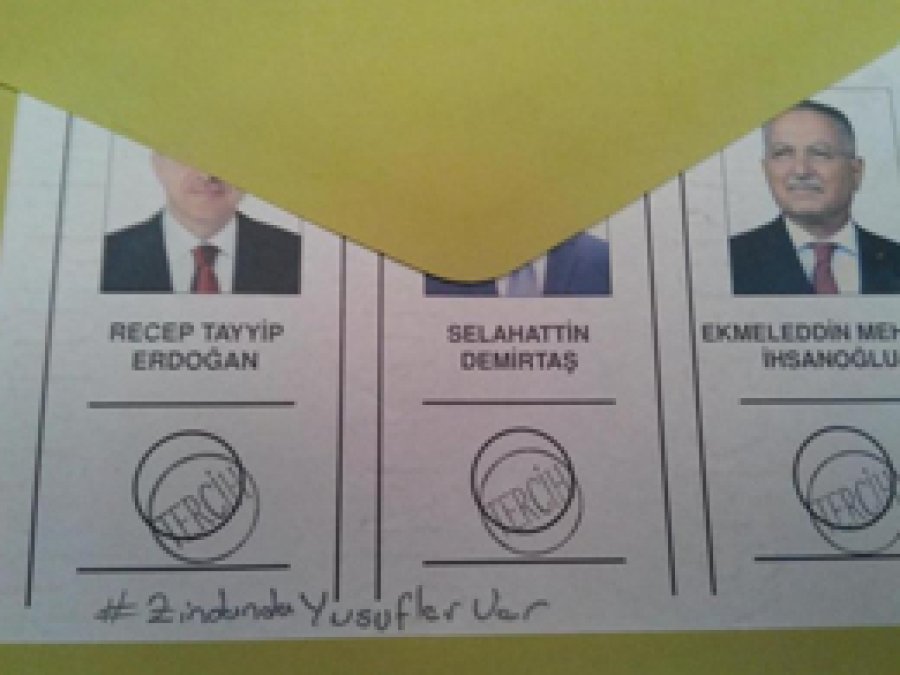 RECEP TAYYİP
ERDOĞAN
TERCİH
SELAHATTİN
DEMİRTAŞ
TERCİH
EKMELEDDİN MEH
İHSANOĞLU
TERCİH
#ZindandaYusuflerVar